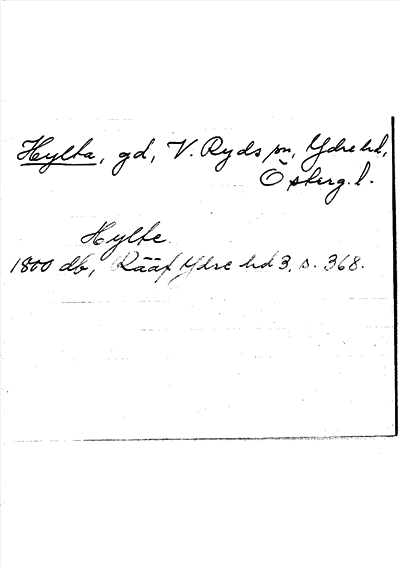 Hylta, gd, V. Ryds sn, Ydre hd,
Österg. l.
Hylte
1800 db, Rääf Ydre hd 3, s. 368.